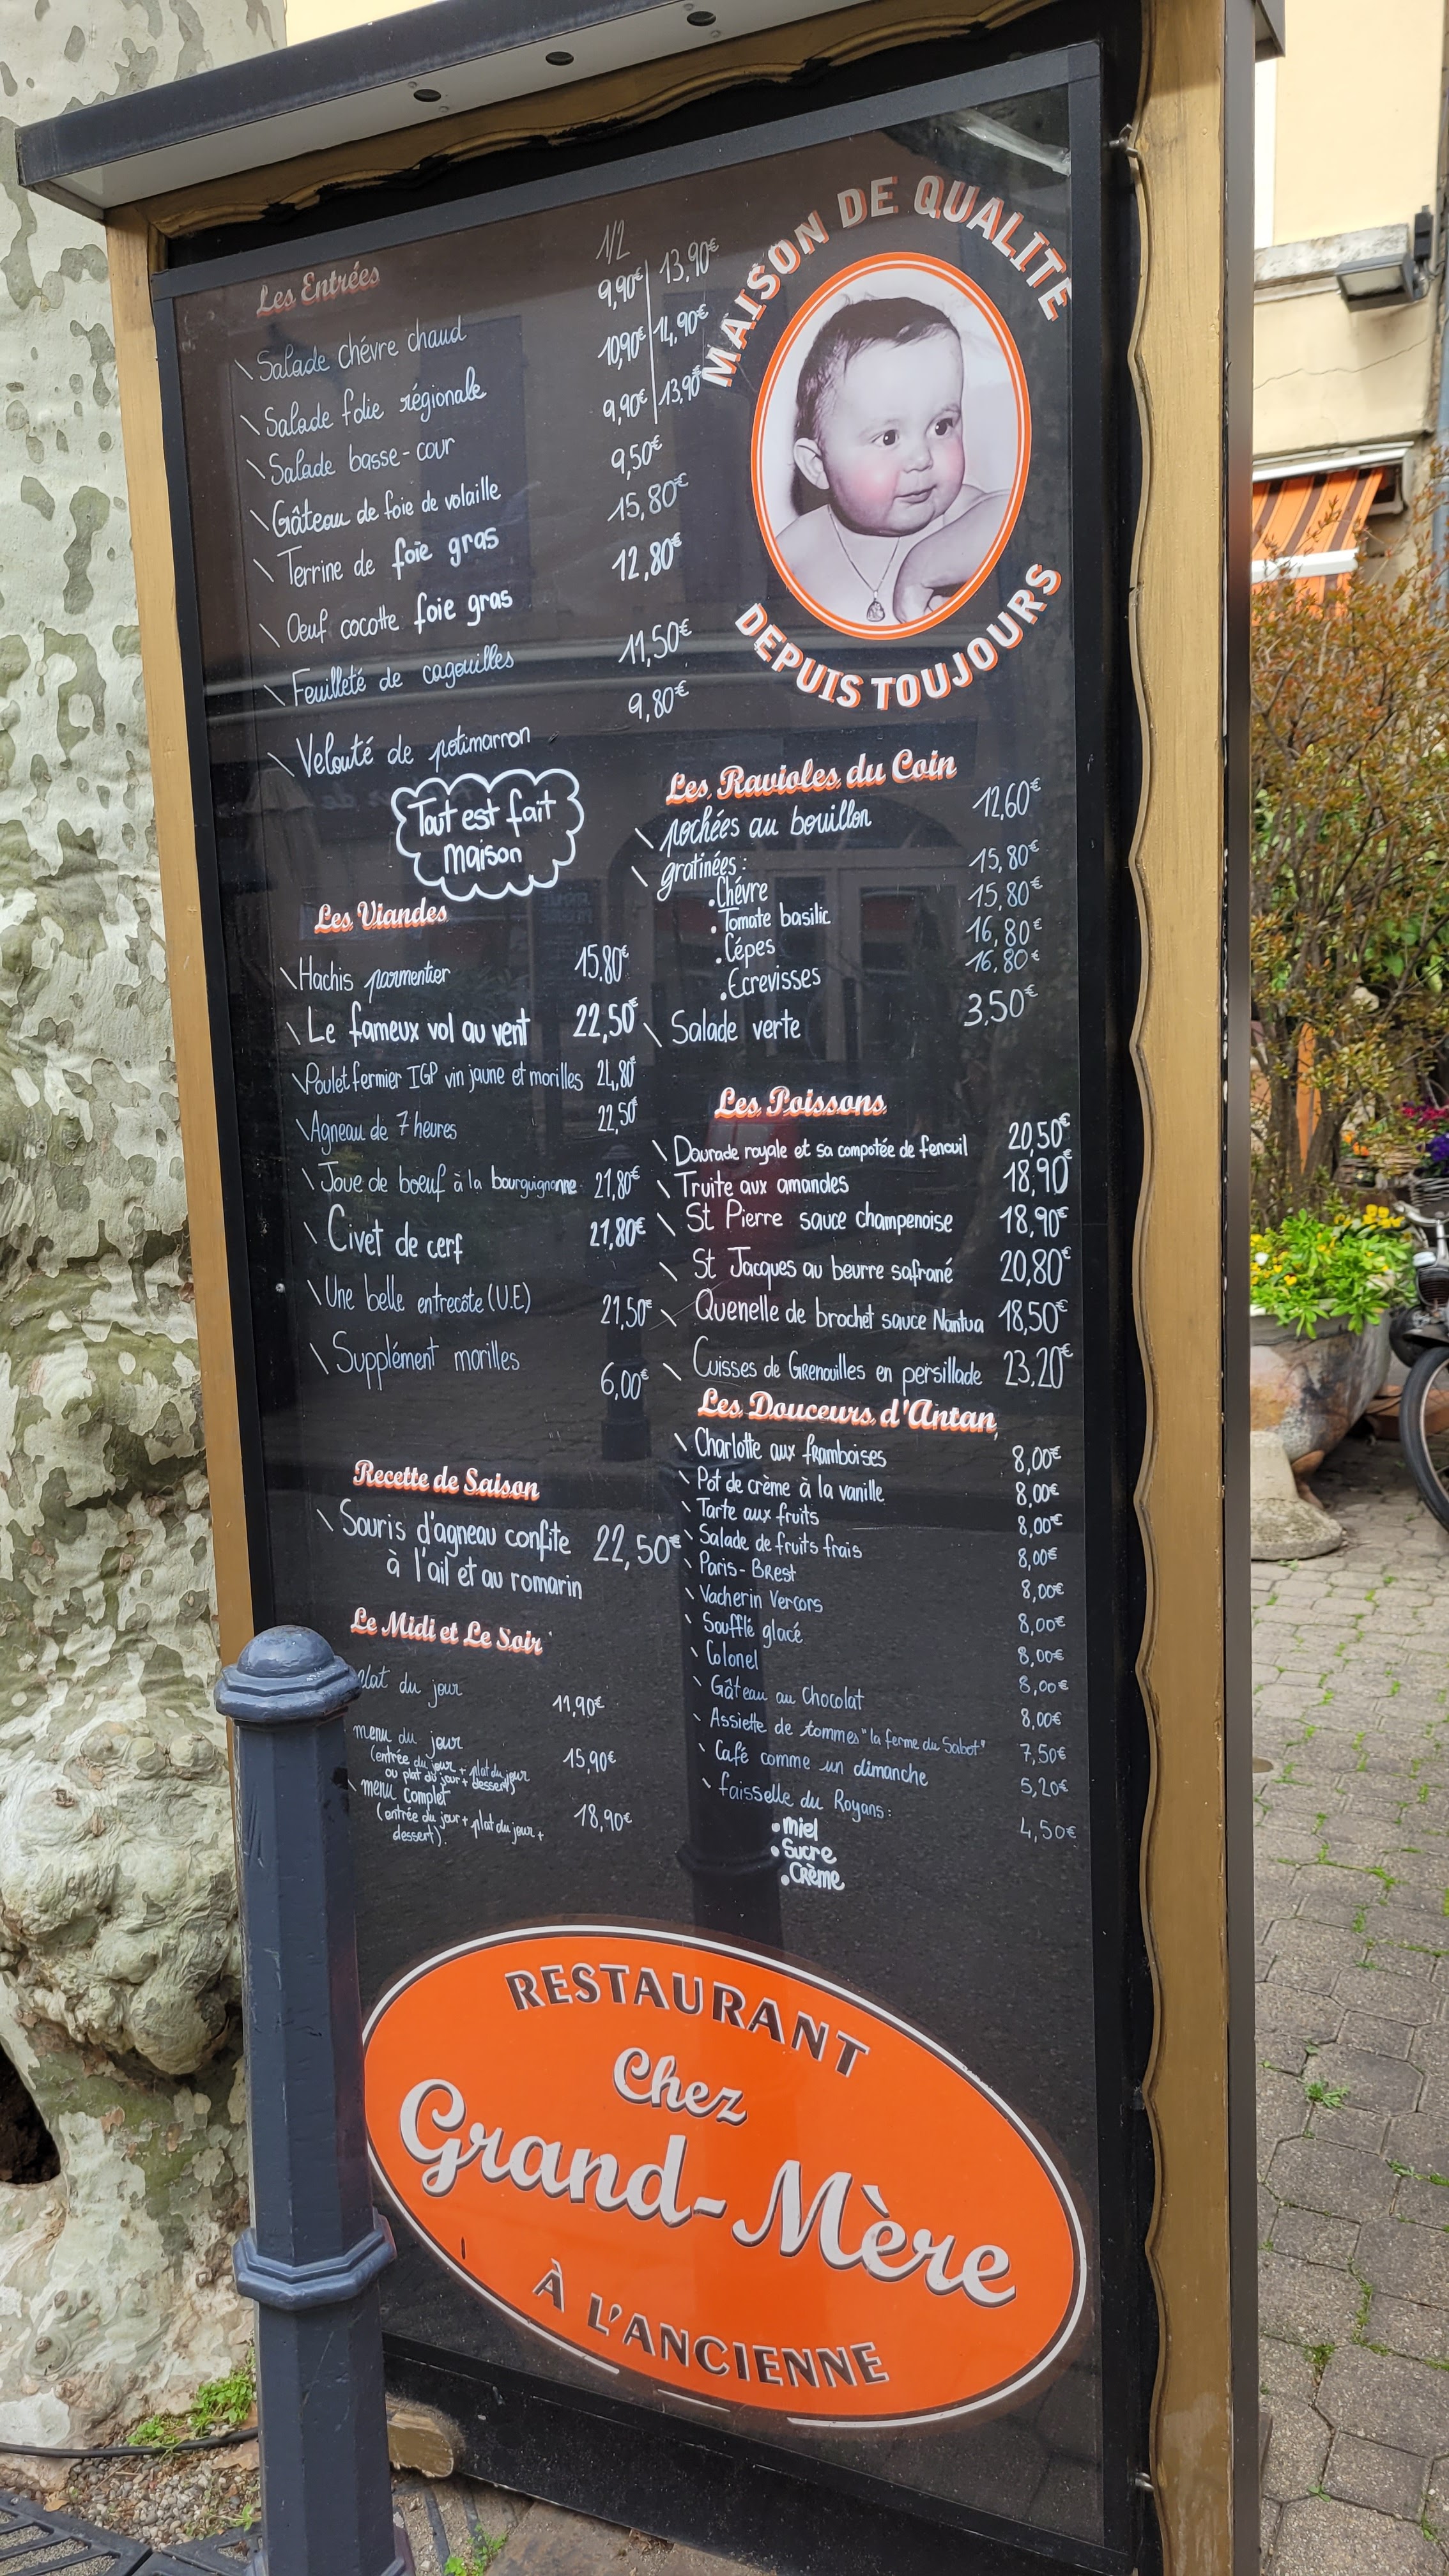 MAISON DE QUALITE
DEPUIS TOUJOURS
Les Entrées
1/2
\ Salade chévre chaud 9,90€ | 13,90€
\ Salade folie régionale 10,90€ | 14,90€
\ Salade basse-cour 9,90€ | 13,90€
\ Gâteau de foie de volaille 9,50€
\ Terrine de foie gras 15,80€
\ Oeuf cocotte foie gras 12,80€
\ Feuilleté de cagouilles 11,50€
\ Velouté de potimarron 9,80€
Tout est fait
maison
Les Viandes
\ Hachis parmentier 15,80€
\ Le fameux vol au vent 22,50€
\ Poulet fermier IGP vin jaune et morilles 24,80€
\ Agneau de 7 heures 22,50€
\ Joue de boeuf à la bourguignonne 21,80€
\ Civet de cerf 21,80€
\ Une belle entrecôte (U.E) 21,50€
\ Supplément morilles 6,00€
Recette de Saison
\ Souris d'agneau confite 22,50€
à l'ail et au romarin
Le Midi et Le Soir
plat du jour 11,90€
menu du jour 15,90€
(entrée du jour + plat du jour
ou plat du jour + dessert)
\ menu complet 18,90€
(entrée du jour + plat du jour +
dessert).
Les Ravioles du Coin
\ pochées au bouillon 12,60€
\ gratinées :
. Chévre 15,80€
. Tomate basilic 15,80€
. Cépes 16,80€
. Ecrevisses 16,80€
\ Salade verte 3,50€
Les Poissons
\ Dourade royale et sa compotée de fenouil 20,50€
\ Truite aux amandes 18,90€
\ St Pierre sauce champenoise 18,90€
\ St Jacques au beurre safrané 20,80€
\ Quenelle de brochet sauce Nantua 18,50€
\ Cuisses de Grenouilles en persillade 23.20€
Les Douceurs d'Antan
\ Charlotte aux framboises 8,00€
\ Pot de crème à la vanille 8,00€
\ Tarte aux fruits 8,00€
\ Salade de fruits frais 8,00€
\ Paris-Brest 8,00€
\ Vacherin Vercors 8,00€
\ Soufflé glacé 8,00€
\ Colonel 8,00€
\ Gâteau au Chocolat 8,00€
\ Assiette de tommes "la ferme du Sabot" 7,50€
\ Café comme un dimanche 5,20€
\ faisselle du Royans : 4,50€
. miel
. Sucre
. Crème
RESTAURANT
Chez
Grand-Mère
À L'ANCIENNE